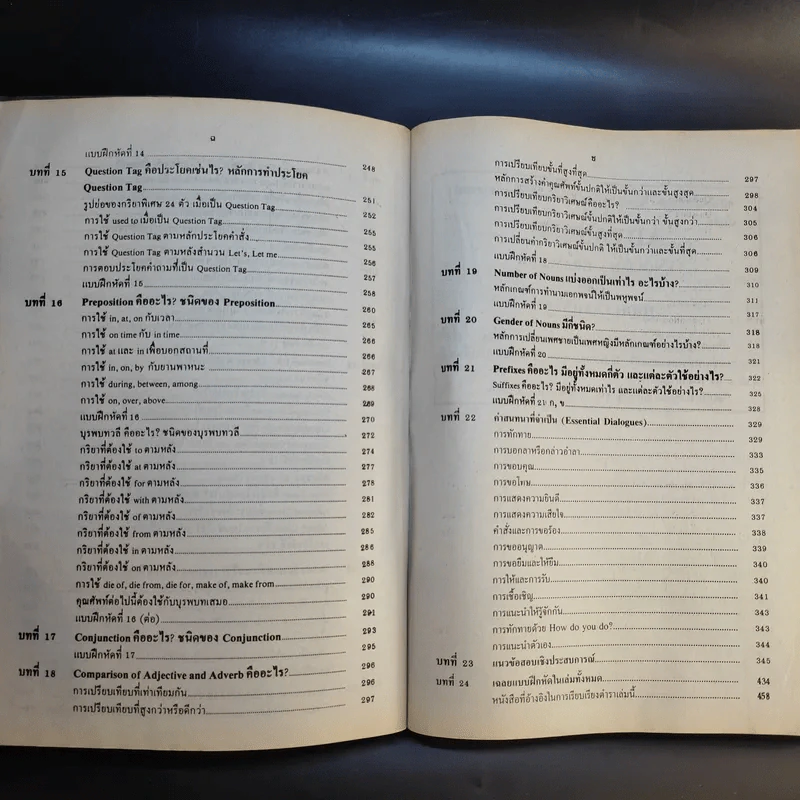 ฉ
แบบฝึกหัดที่ 14 248
บทที่ 15 Question Tag คือประโยคเช่นไร? หลักการทำประโยค
Question Tag 251
รูปย่อของกริยาพิเศษ 24 ตัว เมื่อเป็น Question Tag 252
การใช้ used to เมื่อเป็น Question Tag 255
การใช้ Question Tag ตามหลังประโยคคำสั่ง 255
การใช้ Question Tag ตามหลังสำนวน Let's, Let me 256
การตอบประโยคคำถามที่เป็น Question Tag 257
แบบฝึกหัดที่ 15 258
บทที่ 16 Preposition คืออะไร? ชนิดของ Preposition 260
การใช้ in, at, on กับเวลา 265
การใช้ on time กับ in time 266
การใช้ at และ in เพื่อบอกสถานที่ 266
การใช้ in, on, by กับยานพาหนะ 267
การใช้ during, between, among 268
การใช้ on, over, above 269
แบบฝึกหัดที่ 16 270
บุรพบทวลี คืออะไร? ชนิดของบุรพบทวลี 272
กริยาที่ต้องใช้ to ตามหลัง 274
กริยาที่ต้องใช้ at ตามหลัง 277
กริยาที่ต้องใช้ for ตามหลัง 278
กริยาที่ต้องใช้ with ตามหลัง 281
กริยาที่ต้องใช้ of ตามหลัง 282
กริยาที่ต้องใช้ from ตามหลัง 285
กริยาที่ต้องใช้ in ตามหลัง 286
กริยาที่ต้องใช้ on ตามหลัง 288
การใช้ die of, die from, die for, make of, make from 290
คุณศัพท์ต่อไปนี้ต้องใช้กับบุรพบทเสมอ 290
แบบฝึกหัดที่ 16 (ต่อ) 291
บทที่ 17 Conjunction คืออะไร? ชนิดของ Conjunction 293
แบบฝึกหัดที่ 17 295
บทที่ 18 Comparison of Adjective and Adverb คืออะไร? 296
การเปรียบเทียบที่เท่าเทียมกัน 296
การเปรียบเทียบที่สูงกว่าหรือดีกว่า 297
ช
การเปรียบเทียบขั้นที่สูงที่สุด 297
หลักการสร้างคำคุณศัพท์ขั้นปกติให้เป็นขั้นกว่าและขั้นสูงสุด 298
การเปรียบเทียบกริยาวิเศษณ์คืออะไร? 304
การเปรียบเทียบกริยาวิเศษณ์ขั้นปกติให้เป็นขั้นกว่า ขั้นสูงกว่า 305
การเปรียบเทียบกริยาวิเศษณ์ขั้นสูงที่สุด 306
การเปลี่ยนคำกริยาวิเศษณ์ขั้นปกติ ให้เป็นขั้นกว่าและขั้นที่สุด 306
แบบฝึกหัดที่ 18 309
บทที่ 19 Number of Nouns แบ่งออกเป็นเท่าไร อะไรบ้าง? 310
หลักเกณฑ์การทำนามเอกพจน์ให้เป็นพหูพจน์ 311
แบบฝึกหัดที่ 19 317
บทที่ 20 Gender of Nouns มีกี่ชนิด? 318
หลักการเปลี่ยนเพศชายเป็นเพศหญิงมีหลักเกณฑ์อย่างไรบ้าง? 318
แบบฝึกหัดที่ 20 321
บทที่ 21 Prefixes คืออะไร มีอยู่ทั้งหมดกี่ตัว และแต่ละตัวใช้อย่างไร? 322
Suffixes คืออะไร? มีอยู่ทั้งหมดเท่าไร และแต่ละตัวใช้อย่างไร? 325
แบบฝึกหัดที่ 21 ก, ข 328
บทที่ 22 คำสนทนาที่จำเป็น (Essential Dialogues) 329
การทักทาย 329
การบอกลาหรือกล่าวอำลา 333
การขอบคุณ 335
การขอโทษ 336
การแสดงความยินดี 337
การแสดงความเสียใจ 337
คำสั่งและการขอร้อง 338
การขออนุญาต 339
การขอยืมและให้ยืม 340
การให้และการรับ 340
การเชื้อเชิญ 341
การแนะนำให้รู้จักกัน 343
การทักทายด้วย How do you do? 343
การแนะนำตัวเอง 344
บทที่ 23 แนวข้อสอบเชิงประสบการณ์ 345
บทที่ 24 เฉลยแบบฝึกหัดในเล่มทั้งหมด 434
หนังสือที่อ้างอิงในการเรียบเรียงตำราเล่มนี้ 458